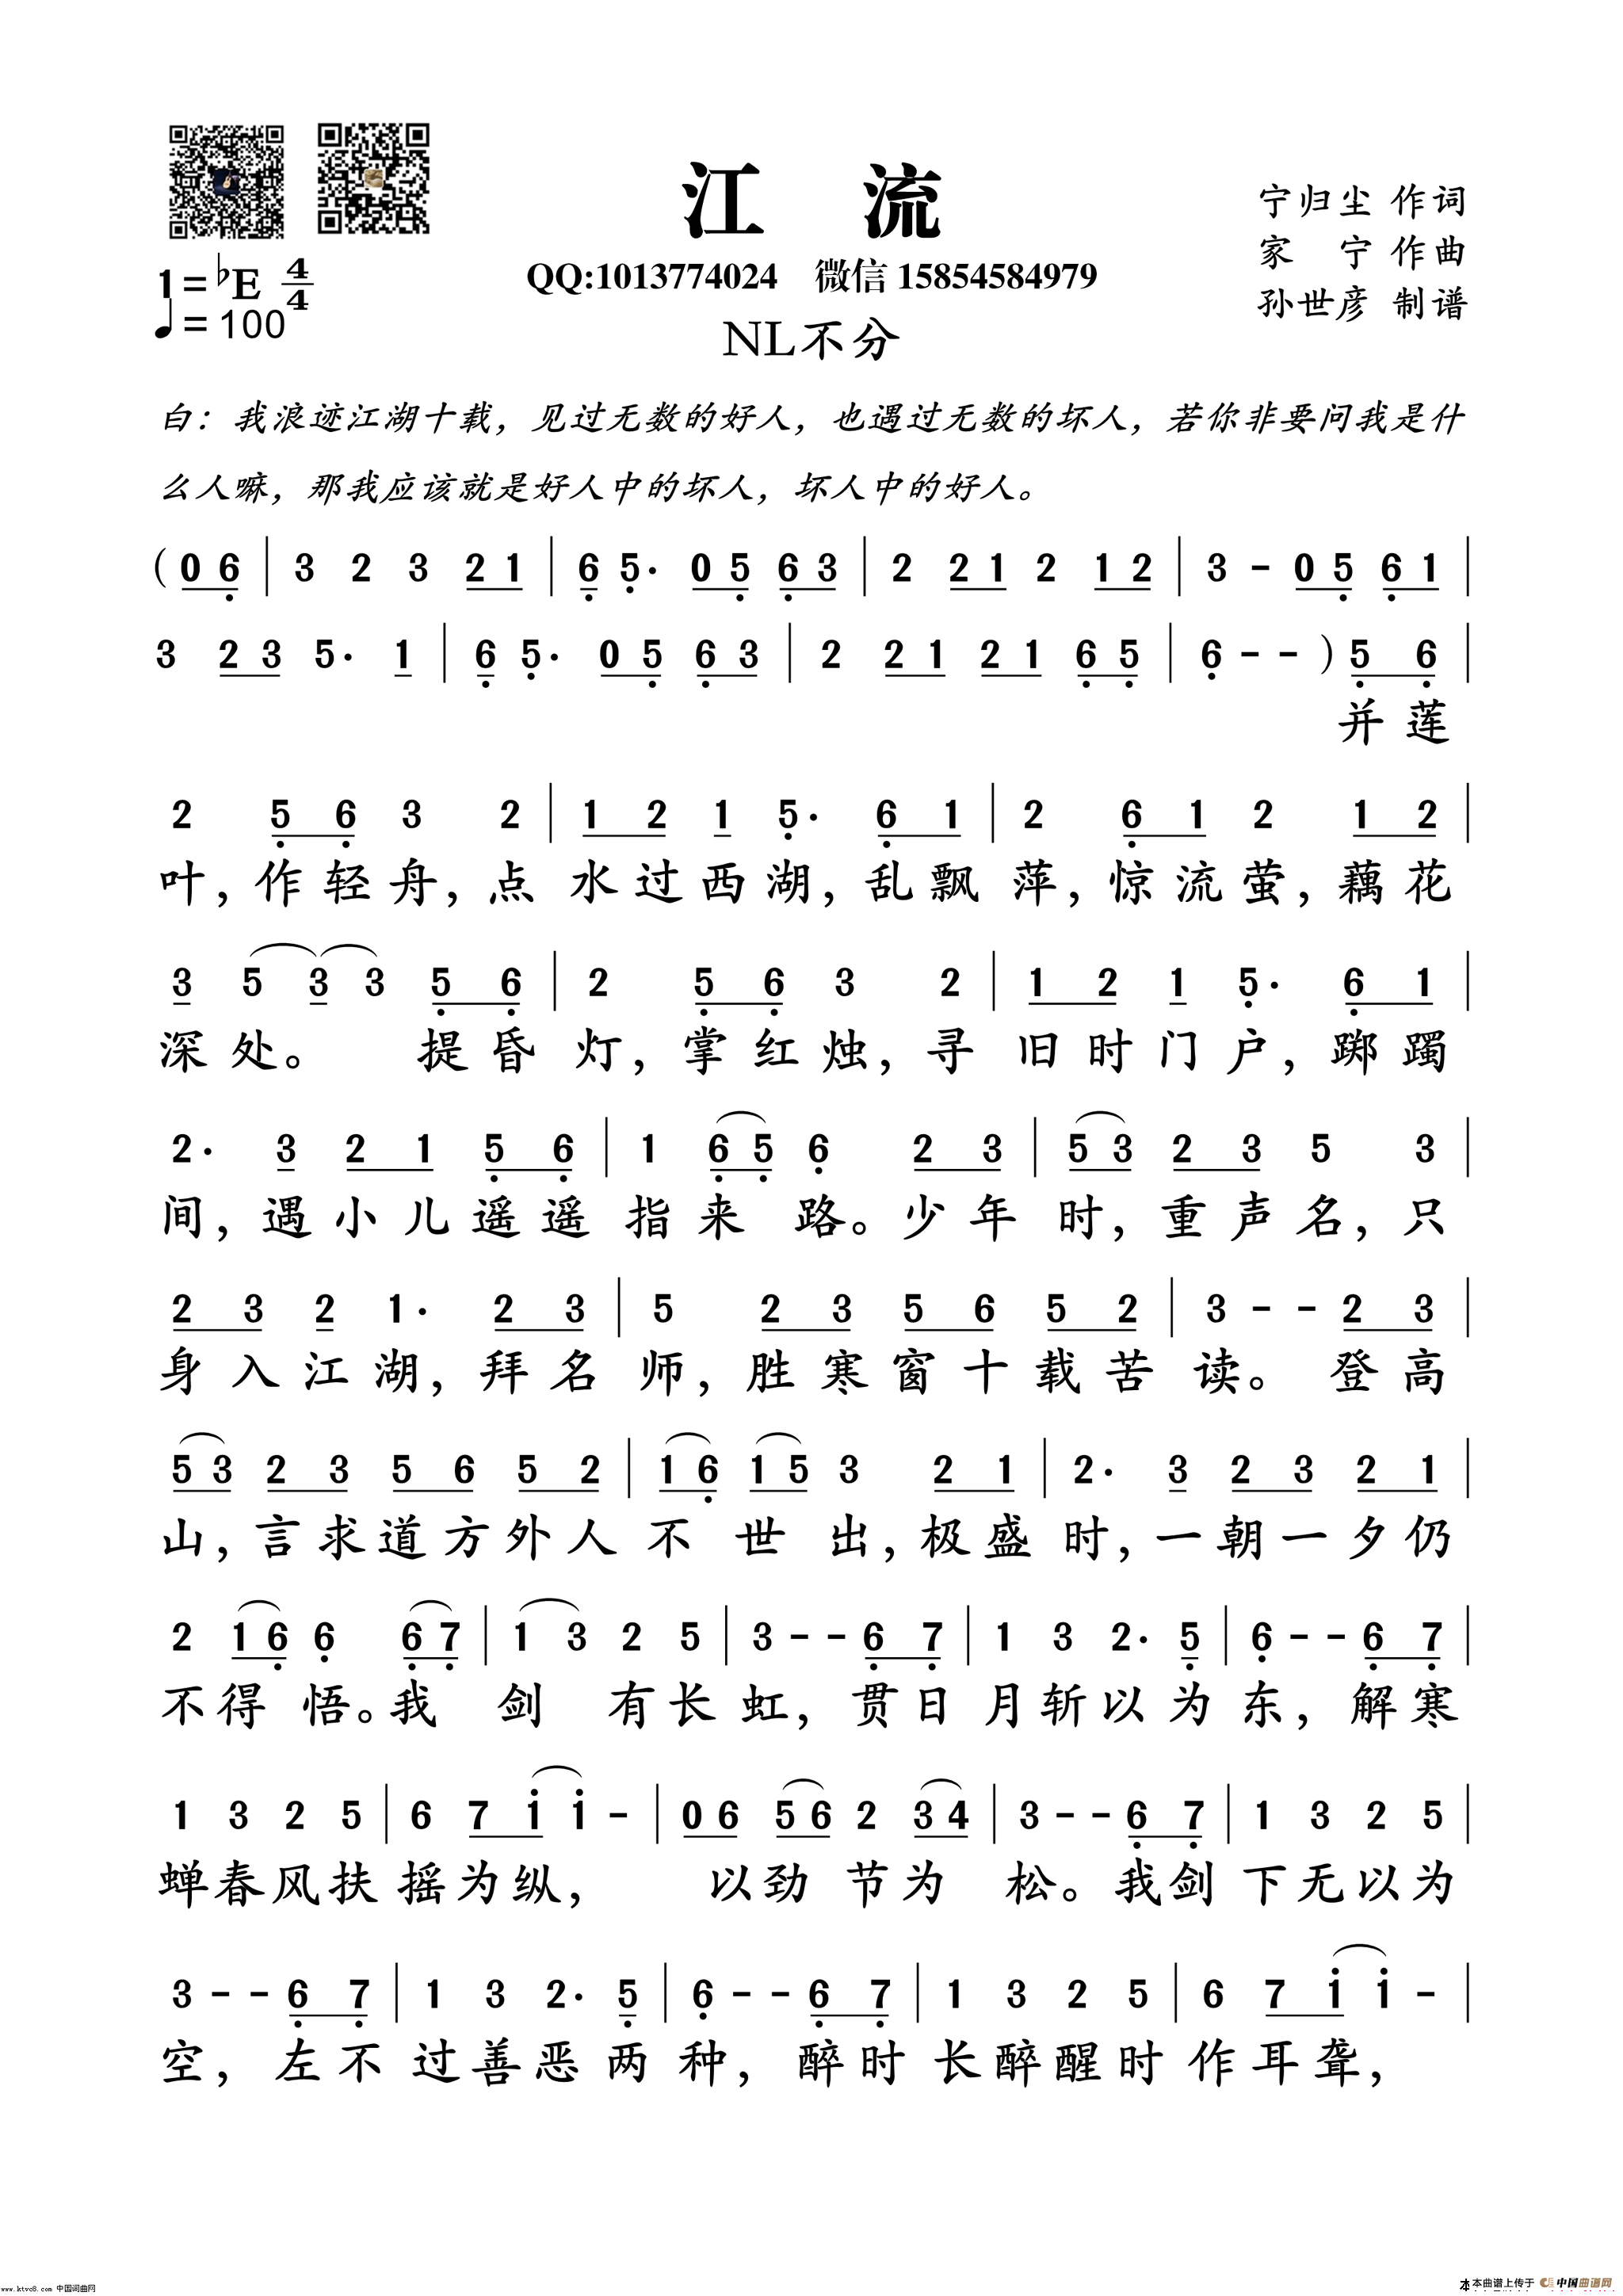 江 流
宁归尘 作词
家 宁 作曲
孙世彦 制谱
QQ:1013774024 微信 15854584979
NL不分
1=♭E 4/4
♩=100
白：我浪迹江湖十载，见过无数的好人，也遇过无数的坏人，若你非要问我是什
么人嘛，那我应该就是好人中的坏人，坏人中的好人。
(0 6 | 3 2 3 2 1 | 6 5. 0 5 6 3 | 2 2 1 2 1 2 | 3 - 0 5 6 1 |
3 2 3 5. 1 | 6 5. 0 5 6 3 | 2 2 1 2 1 6 5 | 6 - - ) 5 6 |
并莲
2 5 6 3 2 | 1 2 1 5. 6 1 | 2 6 1 2 1 2 |
叶，作轻舟，点水过西湖，乱飘萍，惊流萤，藕花
3 5 3 3 5 6 | 2 5 6 3 2 | 1 2 1 5. 6 1 |
深处。 提昏灯，掌红烛，寻旧时门户，踯躅
2. 3 2 1 5 6 | 1 6 5 6 2 3 | 5 3 2 3 5 3 |
间，遇小儿遥遥指来路。少年时，重声名，只
2 3 2 1. 2 3 | 5 2 3 5 6 5 2 | 3 - - 2 3 |
身入江湖，拜名师，胜寒窗十载苦读。登高
5 3 2 3 5 6 5 2 | 1 6 1 5 3 2 1 | 2. 3 2 3 2 1 |
山，言求道方外人不世出，极盛时，一朝一夕仍
2 1 6 6 6 7 | 1 3 2 5 | 3 - - 6 7 | 1 3 2. 5 | 6 - - 6 7 |
不得悟。我剑有长虹，贯日月斩以为东，解寒
1 3 2 5 | 6 7 i i - | 0 6 5 6 2 3 4 | 3 - - 6 7 | 1 3 2 5 |
蝉春风扶摇为纵， 以劲节为松。我剑下无以为
3 - - 6 7 | 1 3 2. 5 | 6 - - 6 7 | 1 3 2 5 | 6 7 i i - |
空，左不过善恶两种，醉时长醉醒时作耳聋，
www.ktvc8.com 中国词曲网
本本曲谱上传于 中国曲谱网